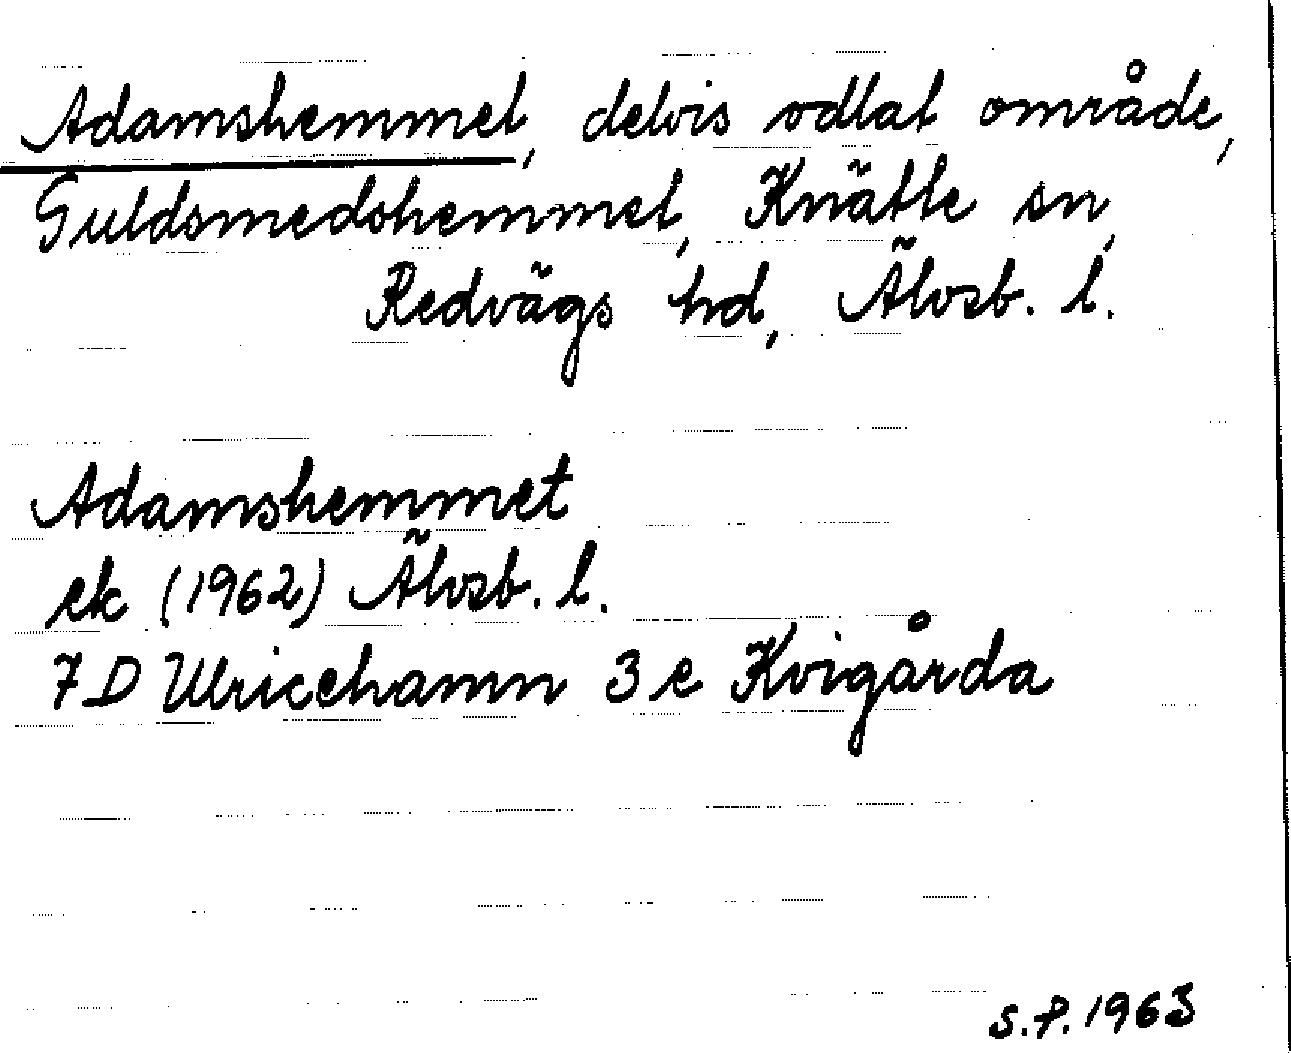 Adamshemmet, delvis odlat område,
Guldsmedshemmet, Knätte sn,
Redvägs hd, Älvsb. l.
Adamshemmet
ek (1962) Älvsb. l.
7D Ulricehamn 3 e Kvigårda
S.P. 1963